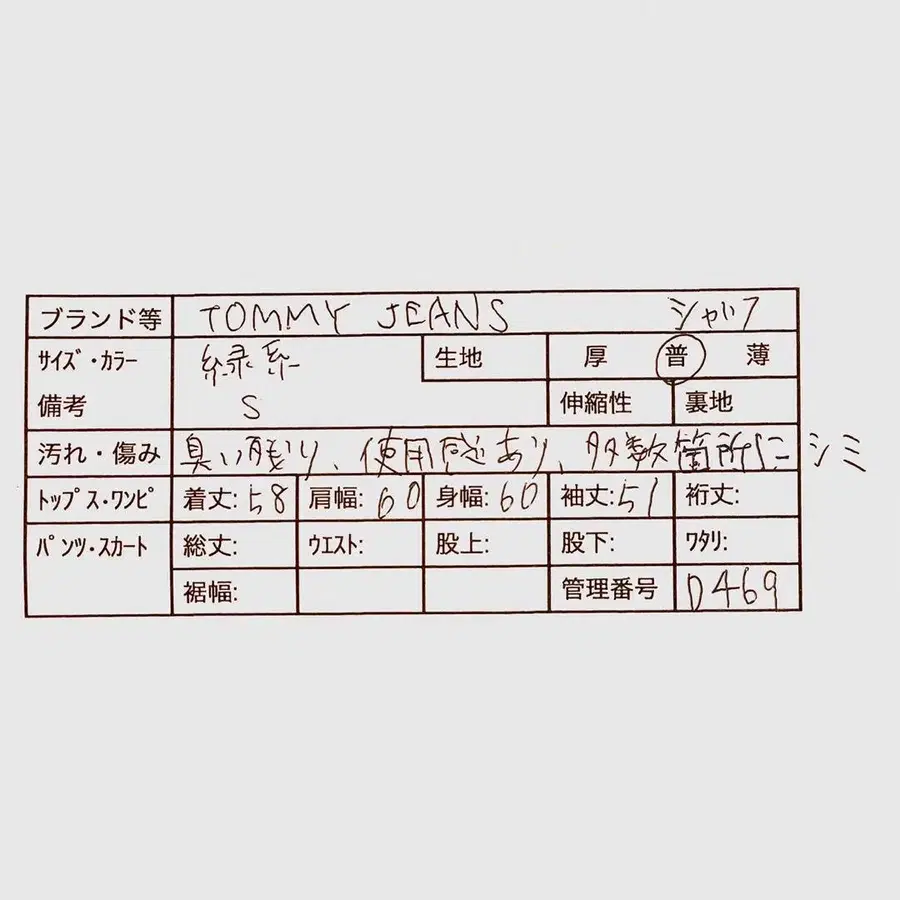 ブランド等 TOMMY JEANS シャツ
サイズ・カラー 緑系 生地 厚 普 薄
備考 S 伸縮性 裏地
汚れ・傷み 臭い残り、使用感あり、多数箇所にシミ
トップス・ワンピ 着丈:58 肩幅:60 身幅:60 袖丈:51 裄丈:
パンツ・スカート 総丈: ウエスト: 股上: 股下: ワタリ:
裾幅: 管理番号 D469